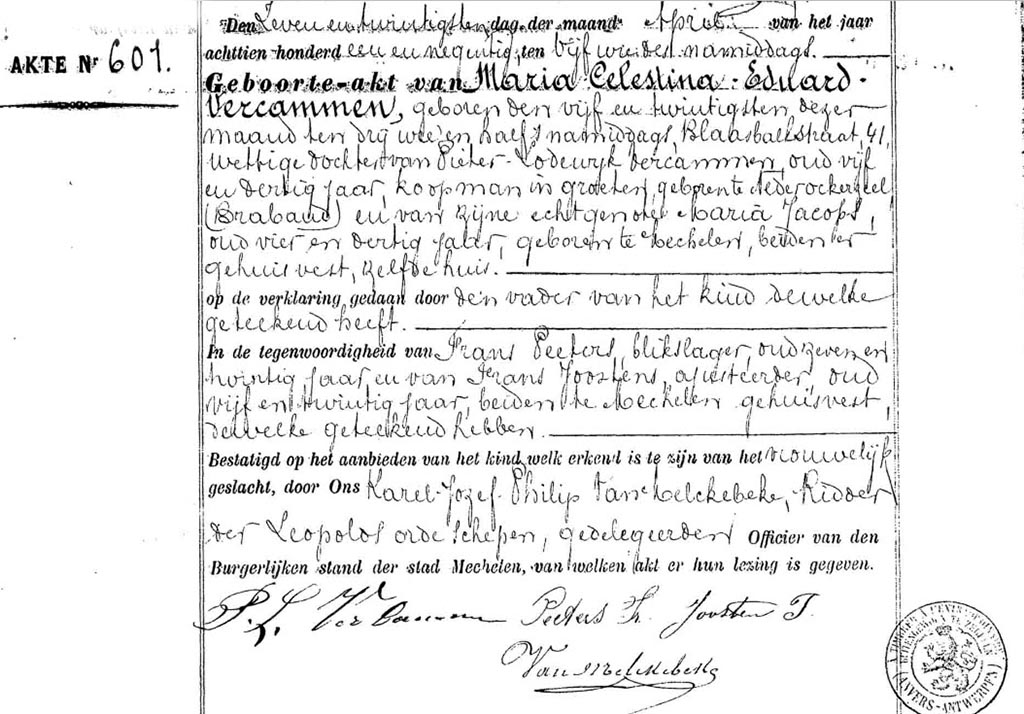 Den Zeven en twintigsten dag der maand April van het jaar
achttien honderd een en negentig, ten vijf ure des namiddags.
AKTE Nr 601.
Geboorte-akt van Maria Celestina-Eduard-
Vercammen, geboren den vijf en twintigsten dezer
maand ten drij ure en half's namiddags, Blaasbalkstraat, 41,
wettige dochter van Pieter-Lodewyk Vercammen, oud vijf
en dertig jaar, koopman in groeten, geboren te Nederockerzeel
(Braband) en van zijne echtgenote Maria Jacobs,
oud vier en dertig jaar, geboren te Mechelen, beiden er
gehuisvest, zelfde huis.
op de verklaring gedaan door den vader van het kind dewelke
geteekend heeft.
In de tegenwoordigheid van Frans Peeters, blikslager, oud zeven en
twintig jaar, en van Frans Joostens, ajusteerder, oud
vijf en twintig jaar, beiden te Mechelen gehuisvest,
dewelke geteekend hebben.
Bestatigd op het aanbieden van het kind welk erkend is te zijn van het vrouwelijk
geslacht, door Ons Karel-Jozef-Philip Van Melckebeke, Ridder
der Leopolds orde Schepen, gedelegeerden Officier van den
Burgerlijken stand der stad Mechelen, van welken akt er hun lezing is gegeven.
P. L. Vercammen Peeters Fr. Joosten F.
Van Melckebeke
(ANVERS-ANTWERPEN)